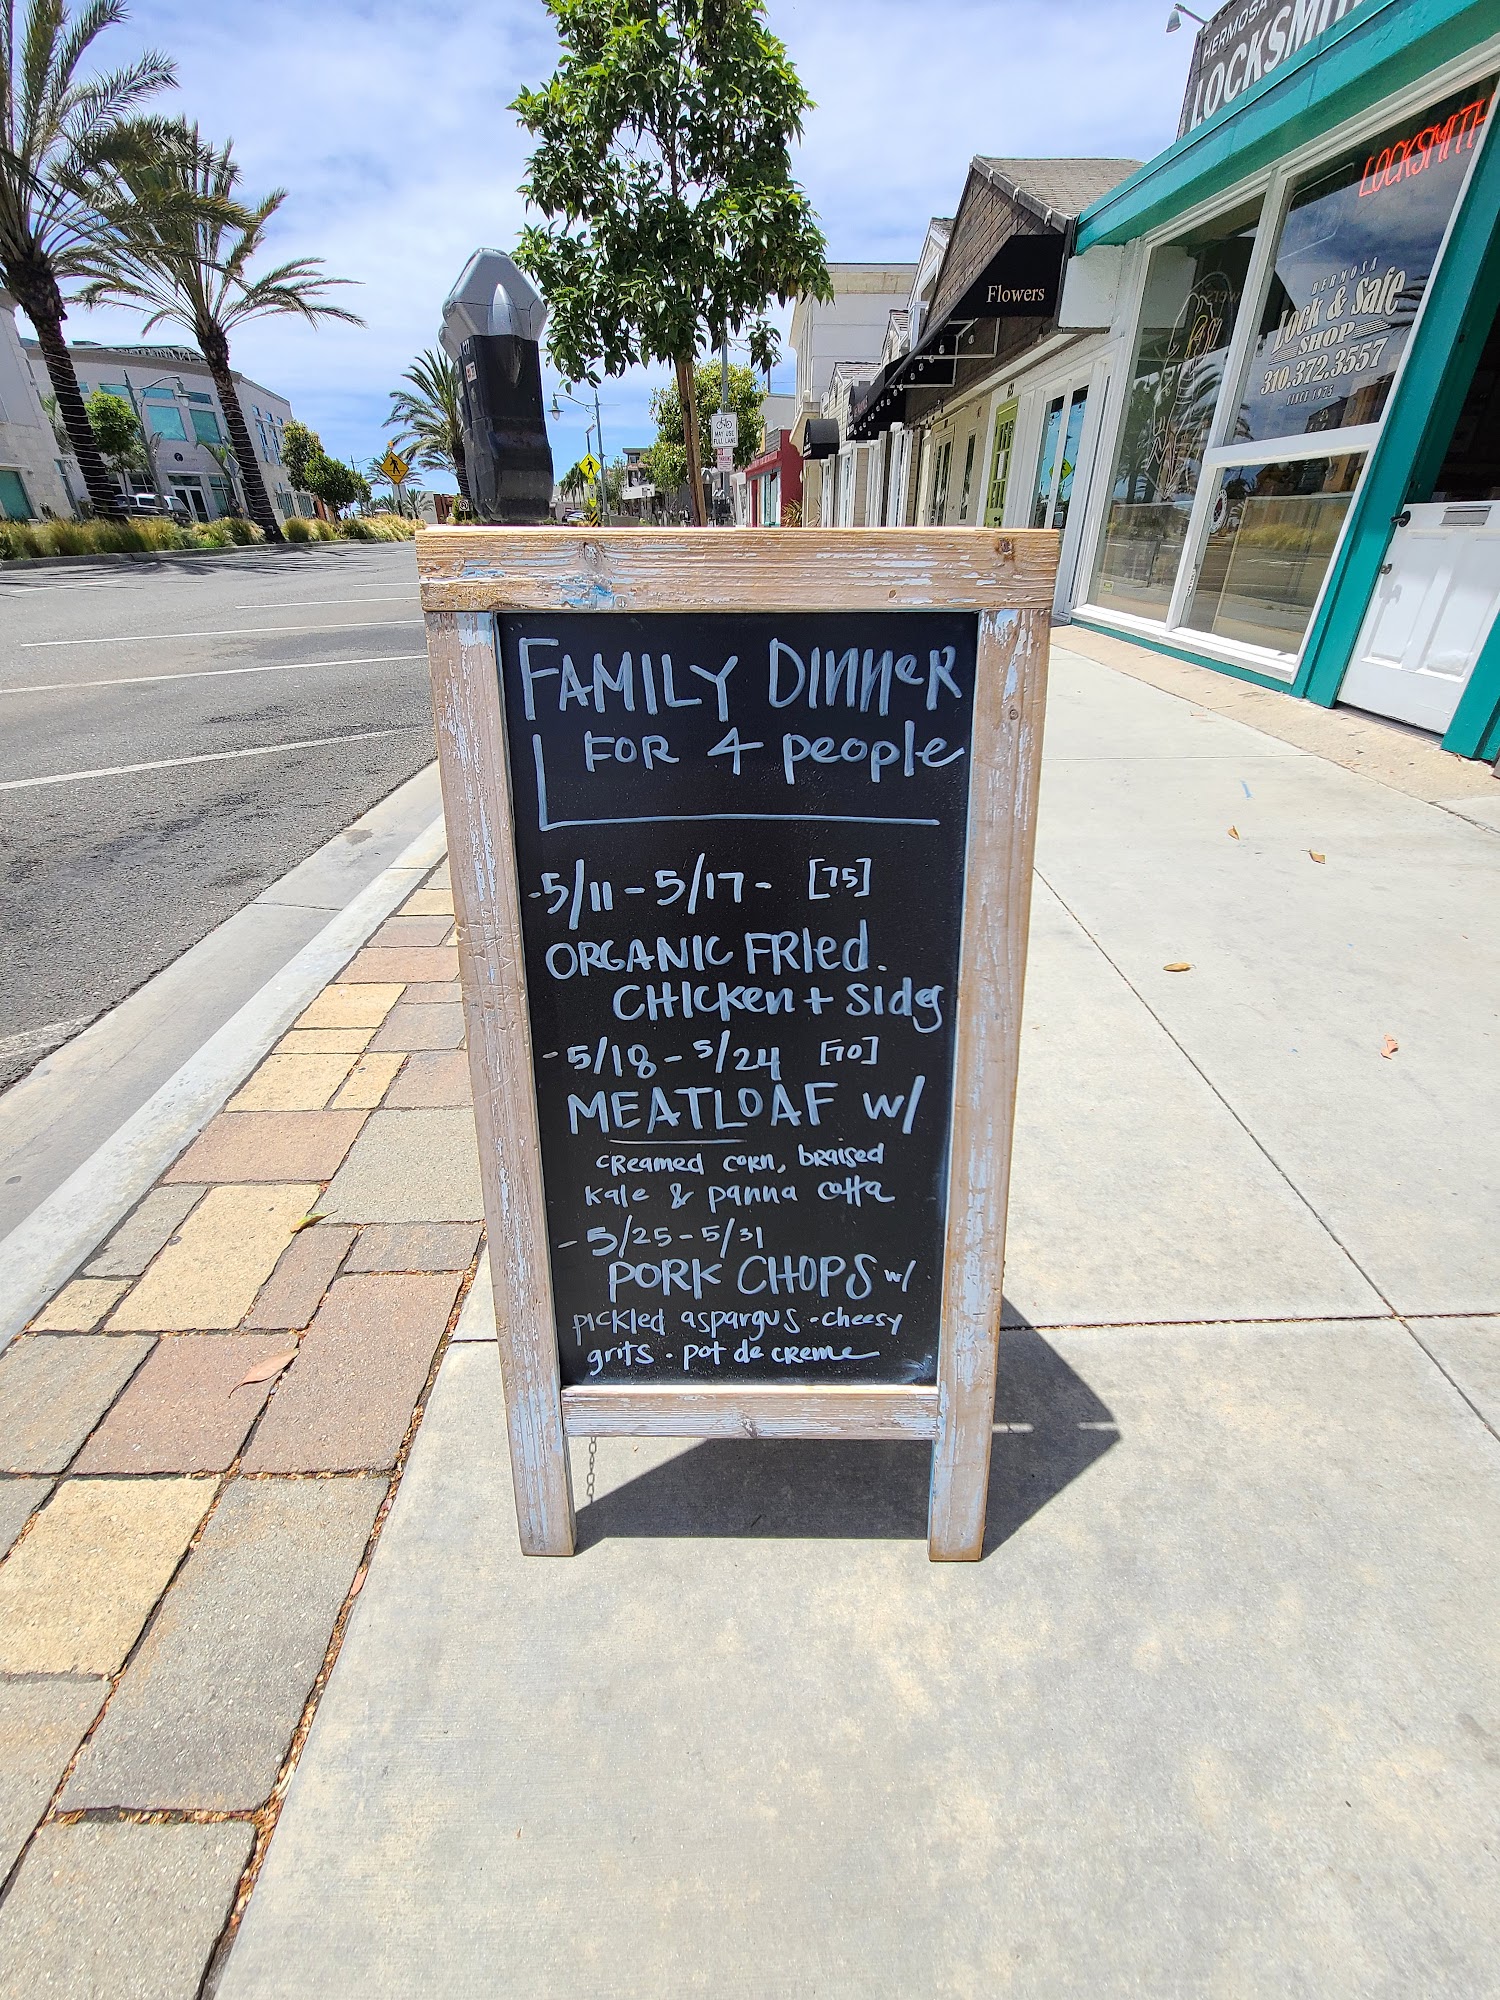 HERMOSA
LOCKSMITH
LOCKSMITH
Flowers
HERMOSA
Lock & Safe
SHOP
310.372.3557
SINCE 1973
MAY USE
FULL LANE
FAMILY DINNER
FOR 4 people
-5/11-5/17- [75]
ORGANIC FRIed.
CHICKEN + SIdes
-5/18-5/24 [70]
MEATLOAF w/
CReamed coRn, bRaised
kale & panna cotta
-5/25-5/31
PORK CHOPS w/
pickled aspargus • cheesy
grits • pot de cReme